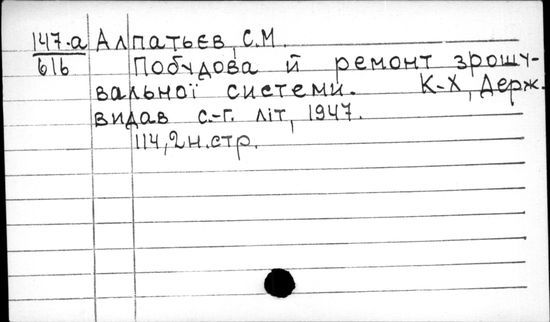 147-а Алпатьєв, С.М.
616 Побудова й ремонт зрошу-
вальної системи. К-Х, Держ.
видав с.-г. літ, 1947.
114,2н.стр.